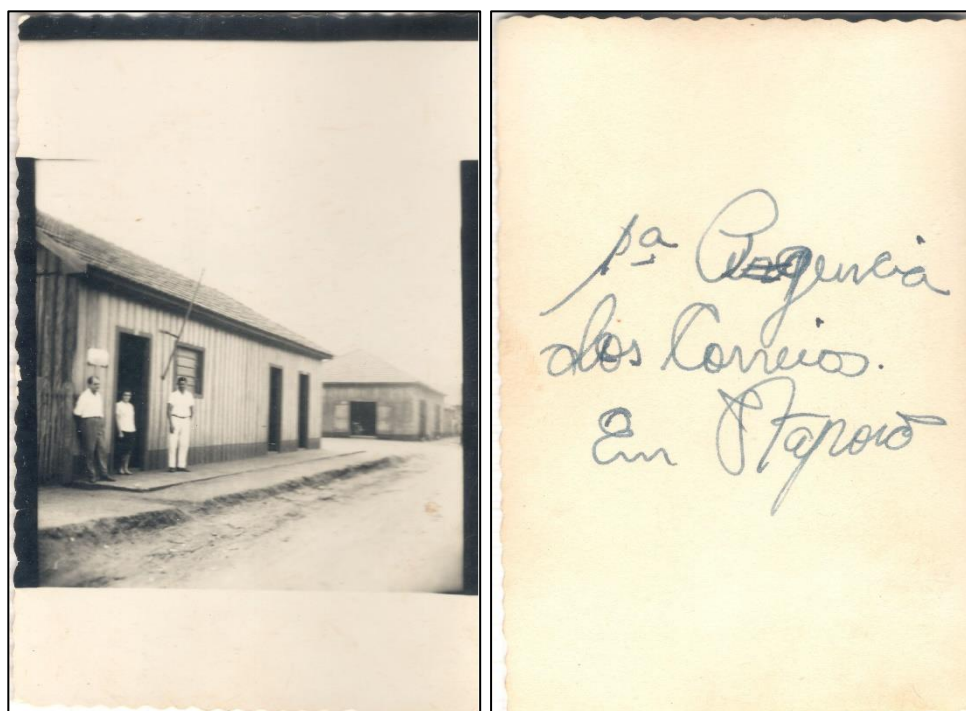 1ª Agencia
dos Correios.
Em Itaporã